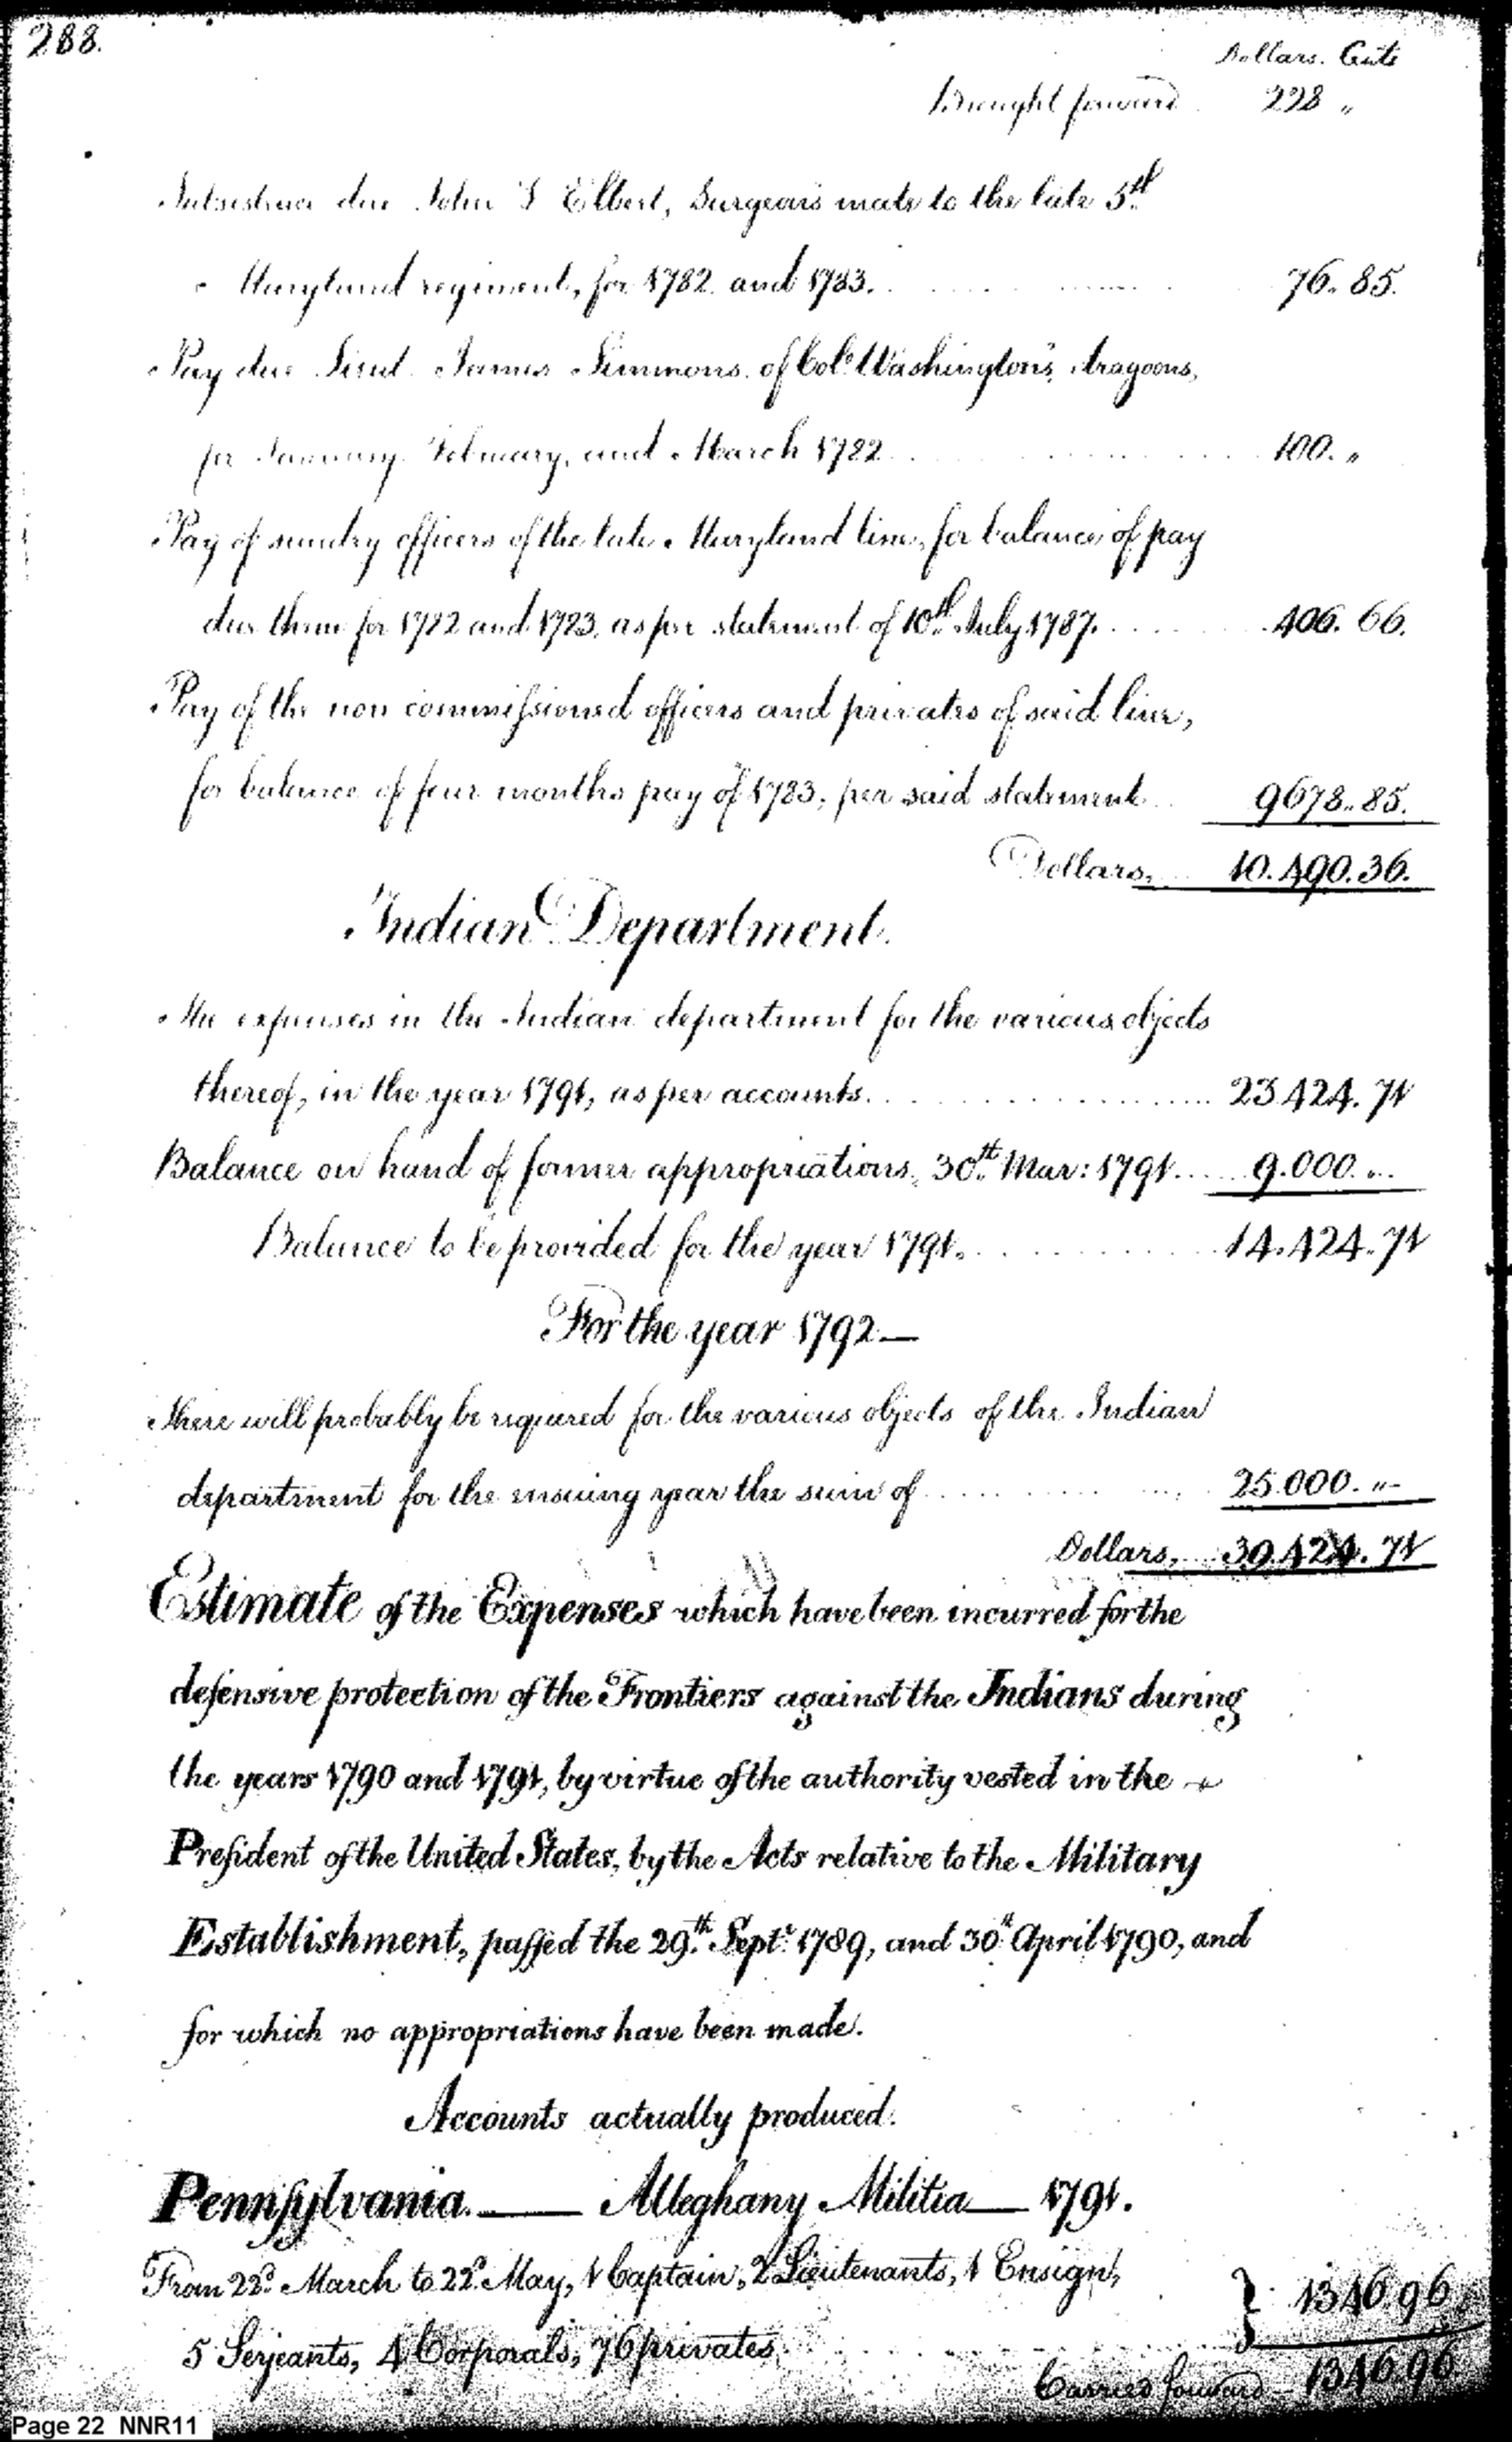 288.
Dollars. Cents
Brought forward 228 "
Subsistence due John S Elbert, Surgeon's mate to the late 5th.
Maryland regiment, for 1782 and 1783. 76. 85.
Pay due Lieut. James Simmons of Colo. Washington's dragoons,
for January February, and March 1782 100. "
Pay of sundry officers of the late Maryland line, for balance of pay
due them for 1782 and 1783, as per statement of 10th. July 1787. 406. 66.
Pay of the non commissioned officers and privates of said line,
for balance of four months pay of 1783, per said statement 9678.. 85.
Dollars, 10.490.36.
Indian Department.
The expenses in the Indian department for the various objects
thereof, in the year 1791, as per accounts. 23.424. 71
Balance on hand of former appropriations, 30th. Mar: 1791 9.000. "
Balance to be provided for the year 1791. 14.424. 71
For the year 1792—
There will probably be required for the various objects of the Indian
department for the ensuing year the sum of 25.000. "
Dollars, 39.424. 71
Estimate of the Expenses which have been incurred for the
defensive protection of the Frontiers against the Indians during
the years 1790 and 1791, by virtue of the authority vested in the
President of the United States, by the Acts relative to the Military
Establishment, passed the 29th. Septr. 1789, and 30th April 1790, and
for which no appropriations have been made.
Accounts actually produced.
Pennsylvania. — Alleghany Militia — 1791.
From 22d. March to 22d. May, 1 Captain, 2 Lieutenants, 1 Ensign, } 1346.96
5 Serjeants, 4 Corporals, 76 privates
Carried forward 1346.96
Page 22 NNR11